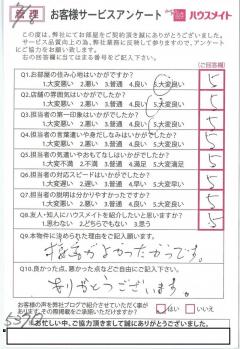 お客様サービスアンケート ハウスメイト
この度は、弊社にてお部屋をご契約頂き誠にありがとうございました。
サービス品質向上の為、弊社業務に反映して参りますので、アンケート
にご協力をお願い致します。
右の回答欄に当てはまる番号をご記入下さい。
(ご回答欄)
Q1.お部屋の住み心地はいかがですか?
1.大変悪い 2.悪い 3.普通 4.良い 5.大変良い
5
Q2.店舗の雰囲気はいかがでしたか?
1.大変悪い 2.悪い 3.普通 4.良い 5.大変良い
5
Q3.担当者の第一印象はいかがでしたか?
1.大変悪い 2.悪い 3.普通 4.良い 5.大変良い
5
Q4.担当者の言葉遣いや身だしなみはいかがでしたか?
1.大変悪い 2.悪い 3.普通 4.良い 5.大変良い
5
Q5.担当者の気遣いやおもてなしはいかがでしたか?
1.大変不満 2.不満 3.普通 4.満足 5.大変満足
5
Q6.担当者の対応スピードはいかがでしたか?
1.大変悪い 2.悪い 3.普通 4.良い 5.大変良い
5
Q7.担当者の説明は分かりやすかったですか?
1.大変悪い 2.悪い 3.普通 4.良い 5.大変良い
5
Q8.友人・知人にハウスメイトを紹介したいと思いますか?
1.思わない 2.どちらでもない 3.思う
5
Q9.本物件に決められた理由をご記入願います。
がよかったからです。
Q10.良かった点、悪かった点などご自由にご記入下さい。
ありがとうございます。
お客様の声を弊社ブログで紹介させていただく事が
あります。その際掲載をご承諾いただけますか?
はい いいえ
お忙しい中、ご協力頂きまして誠にありがとうございました。